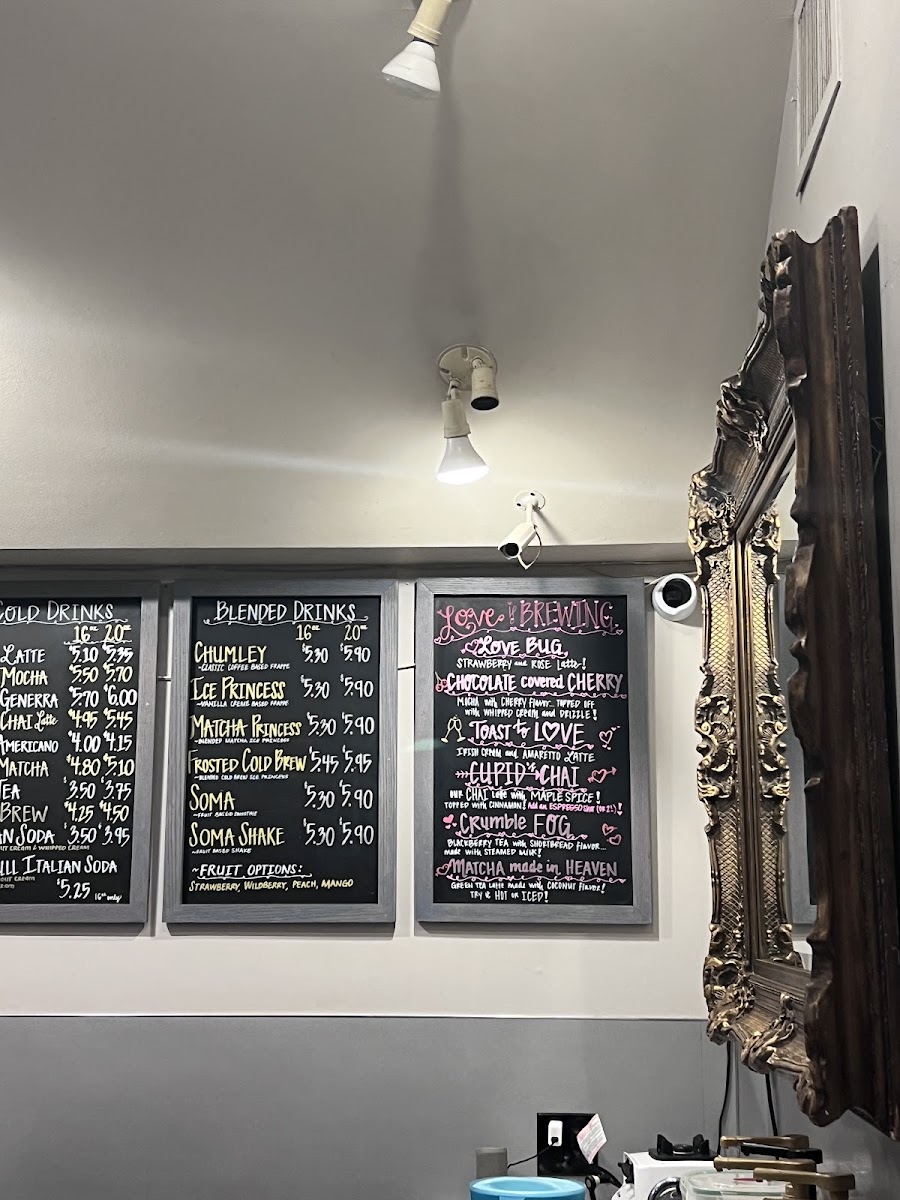 COLD DRINKS
16oz 20oz
LATTE $5.10 $5.35
MOCHA $5.50 $5.70
GENERRA $5.70 $6.00
CHAI Latte $4.95 $5.45
AMERICANO $4.00 $4.15
MATCHA $4.80 $5.10
TEA $3.50 $3.75
BREW $4.25 $4.50
N SODA $3.50 $3.95
& WHIPPED CREAM
ULL ITALIAN SODA
CREAM
$5.25 16oz only
BLENDED DRINKS
16oz 20oz
CHUMLEY $5.30 $5.90
~CLASSIC COFFEE BASED FRAPPE
ICE PRINCESS $5.30 $5.90
~VANILLA CREME BASED FRAPPE
MATCHA PRINCESS $5.30 $5.90
~BLENDED MATCHA ICE PRINCESS
FROSTED COLD BREW $5.45 $5.95
~BLENDED COLD BREW ICE PRINCESS
SOMA $5.30 $5.90
~FRUIT BASED SMOOTHIE
SOMA SHAKE $5.30 $5.90
~FRUIT BASED SHAKE
~FRUIT OPTIONS:
STRAWBERRY, WILDBERRY, PEACH, MANGO
Love is BREWING
LOVE BUG
STRAWBERRY and ROSE Latte!
CHOCOLATE covered CHERRY
MOCHA with CHERRY Flavor... TOPPED OFF
with WHIPPED CREAM and DRIZZLE!
TOAST to LOVE
IRISH CREAM and AMARETTO LATTE
CUPID'S CHAI
OUR CHAI Latte with MAPLE SPICE!
TOPPED with CINNAMON! Add an ESPRESSO SHOT
Crumble FOG
BLACKBERRY TEA with SHORTBREAD Flavor...
made with STEAMED MILK!
MATCHA made in HEAVEN
GREEN TEA Latte made with COCONUT Flavor!
TRY it HOT or ICED!